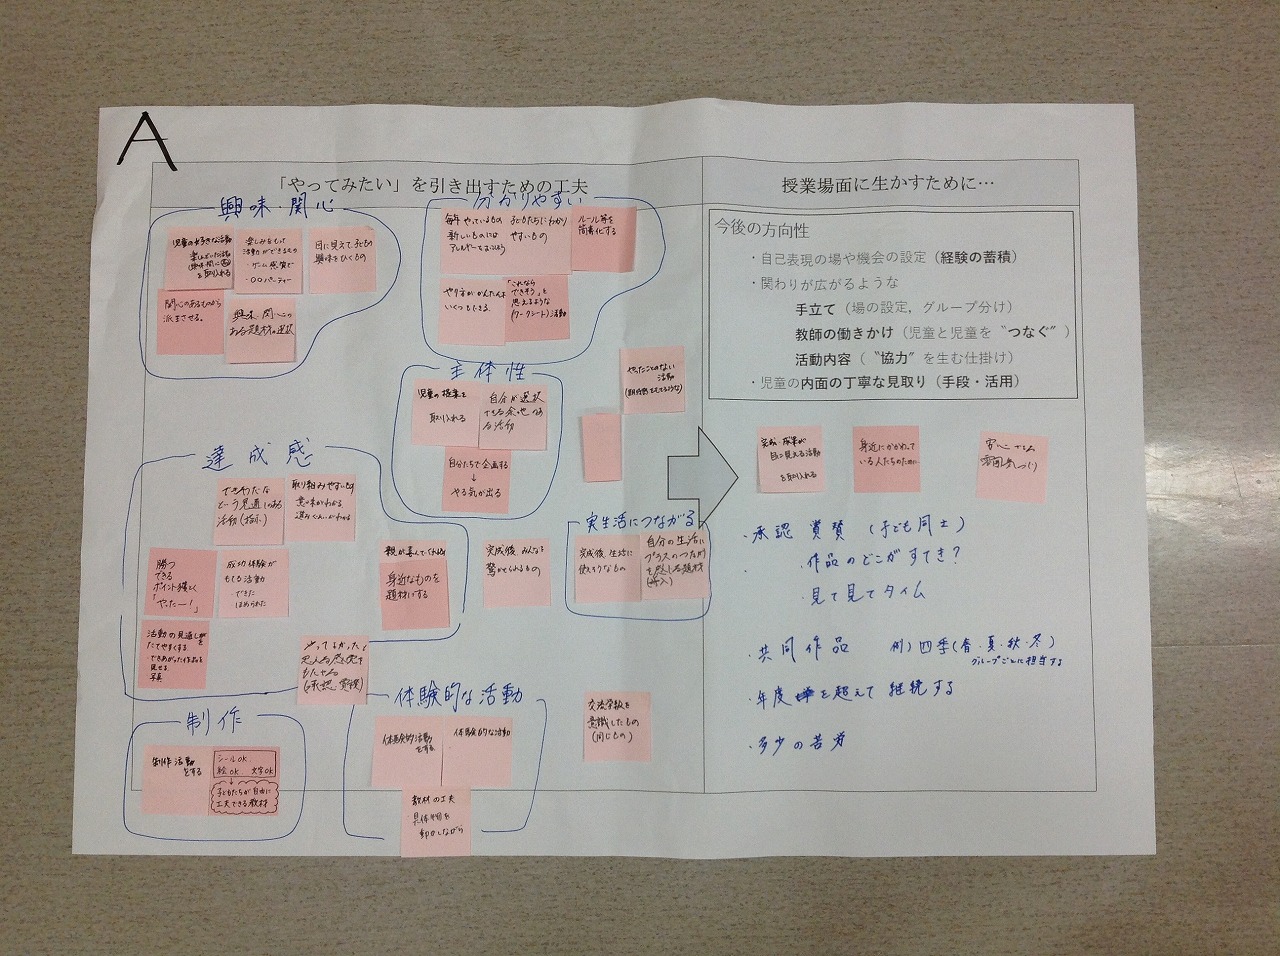 A
「やってみたい」を引き出すための工夫
興味・関心
児童の好きな活動
を取り入れる
楽しみをもって
活動ができるもの
・ゲーム感覚で
・〇〇パーティー
目に見えて子どもの
興味をひくもの
関心のあるものから
派生させる。
興味・関心の
ある題材の選択
分かりやすい
毎年やっているもの
新しいものには
子どもたちにわかり
やすいもの
ルール等を
簡素化する
やり方がかんたんで
いくつもできる。
「これなら
できそう」と
思えるような
(ワークシート)活動
主体性
児童の提案を
取り入れる
自分が選択
できる余地のあ
る活動
自分たちで企画する
↓
やる気が出る
やったことのない
活動
達成感
できそうだな
という見通しのある
活動(指示)
取り組みやすいもの
意味がわかる
勝つ
できる
ポイント獲得
「やったー!」
成功体験が
もてる活動
・できた
・ほめられた
親が喜んでくれる
身近なものを
題材にする
活動の見通しを
たてやすくする
・できあがった作品を
見せる
写真
やってよかった!
もたせる
(承認・賞賛)
完成後 みんなを
驚かせられるもの
実生活につながる
完成後 生活に
使えそうなもの
自分の生活に
プラスのつながり
を感じる題材
制作
制作活動
をする
シールOK
絵OK 文字OK
↓
子どもたちが自由に
工夫できる教材
体験的な活動
体験的活動
をする
体験的な活動
教材の工夫
具体物を
動かしながら
交流学級を
意識したもの
(同じもの)
授業場面に生かすために…
今後の方向性
・自己表現の場や機会の設定(経験の蓄積)
・関わりが広がるような
手立て(場の設定,グループ分け)
教師の働きかけ(児童と児童を〝つなぐ〞)
活動内容(〝協力〞を生む仕掛け)
・児童の内面の丁寧な見取り(手段・活用)
完成・成果が
目に見える活動
を取り入れる
身近にかかわって
いる人たちのために
安心できる
雰囲気づくり
・承認 賞賛 (子ども同士)
・作品のどこがすてき?
・見て見てタイム
・共同作品 例) 四季(春・夏・秋・冬)
グループごとに担当する
・年度を超えて 継続する
・多少の苦労